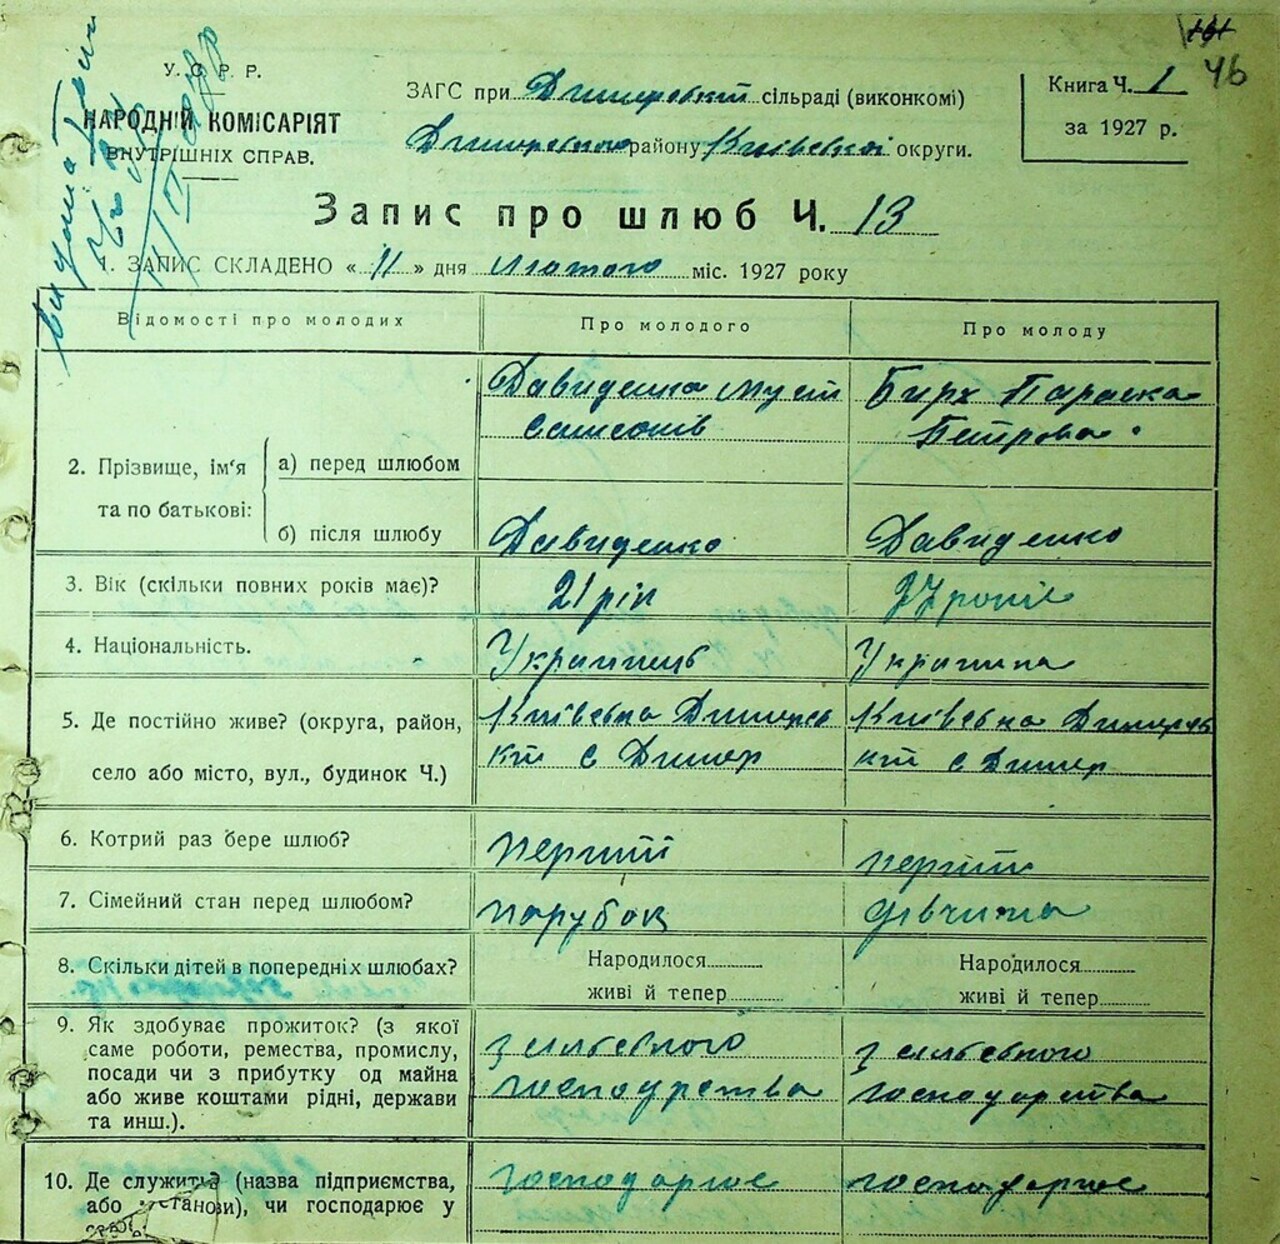 46
У. С. Р. Р.
НАРОДНІЙ КОМІСАРІЯТ
ВНУТРІШНІХ СПРАВ.
ЗАГС при Димерській сільраді (виконкомі)
Димерського району Київської округи.
Книга Ч. 1
за 1927 р.
Запис про шлюб Ч. 13
1. ЗАПИС СКЛАДЕНО « 11 » дня лютого міс. 1927 року
Відомості про молодих Про молодого Про молоду
Давиденко Бирк Параска
Самсонів Петрова
2. Прізвище, ім'я та по батькові:
а) перед шлюбом
б) після шлюбу Давиденко Давиденко
3. Вік (скільки повних років має)? 21 рік років
4. Національність. Українець Українка
5. Де постійно живе? (округа, район, Київська Димерсь Київська Димерсь
село або місто, вул., будинок Ч.) кий с Димер кий с Димер
6. Котрий раз бере шлюб? перший перший
7. Сімейний стан перед шлюбом? парубок дівчина
8. Скільки дітей в попередніх шлюбах? Народилося Народилося
живі й тепер живі й тепер
9. Як здобуває прожиток? (з якої
саме роботи, ремества, промислу,
посади чи з прибутку од майна
або живе коштами рідні, держави
та инш.).
з сільського з сільського
господарства господарства
10. Де служить? (назва підприємства, господарює господарює
або установи), чи господарює у